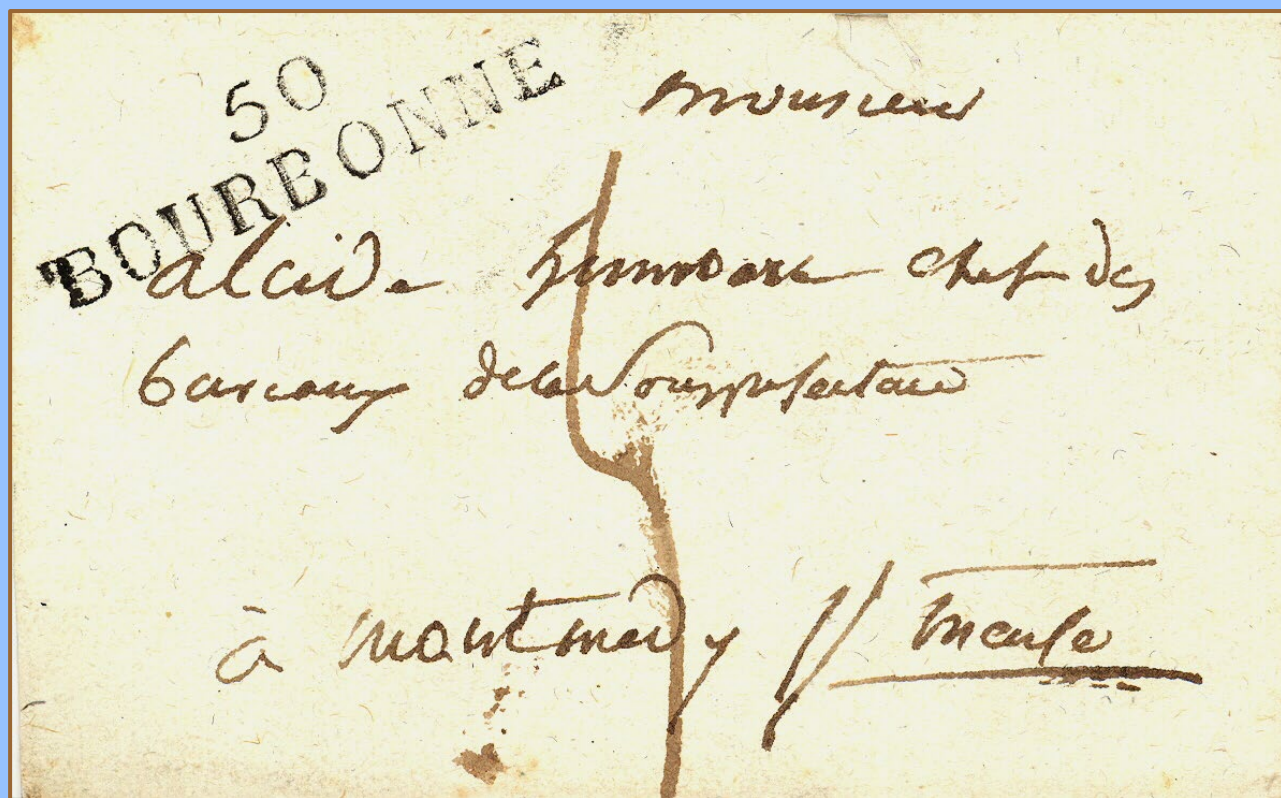 50
BOURBONNE
monsieur
alcide chef des
bureaux de la Souspréfecture
à montmedy // meuse